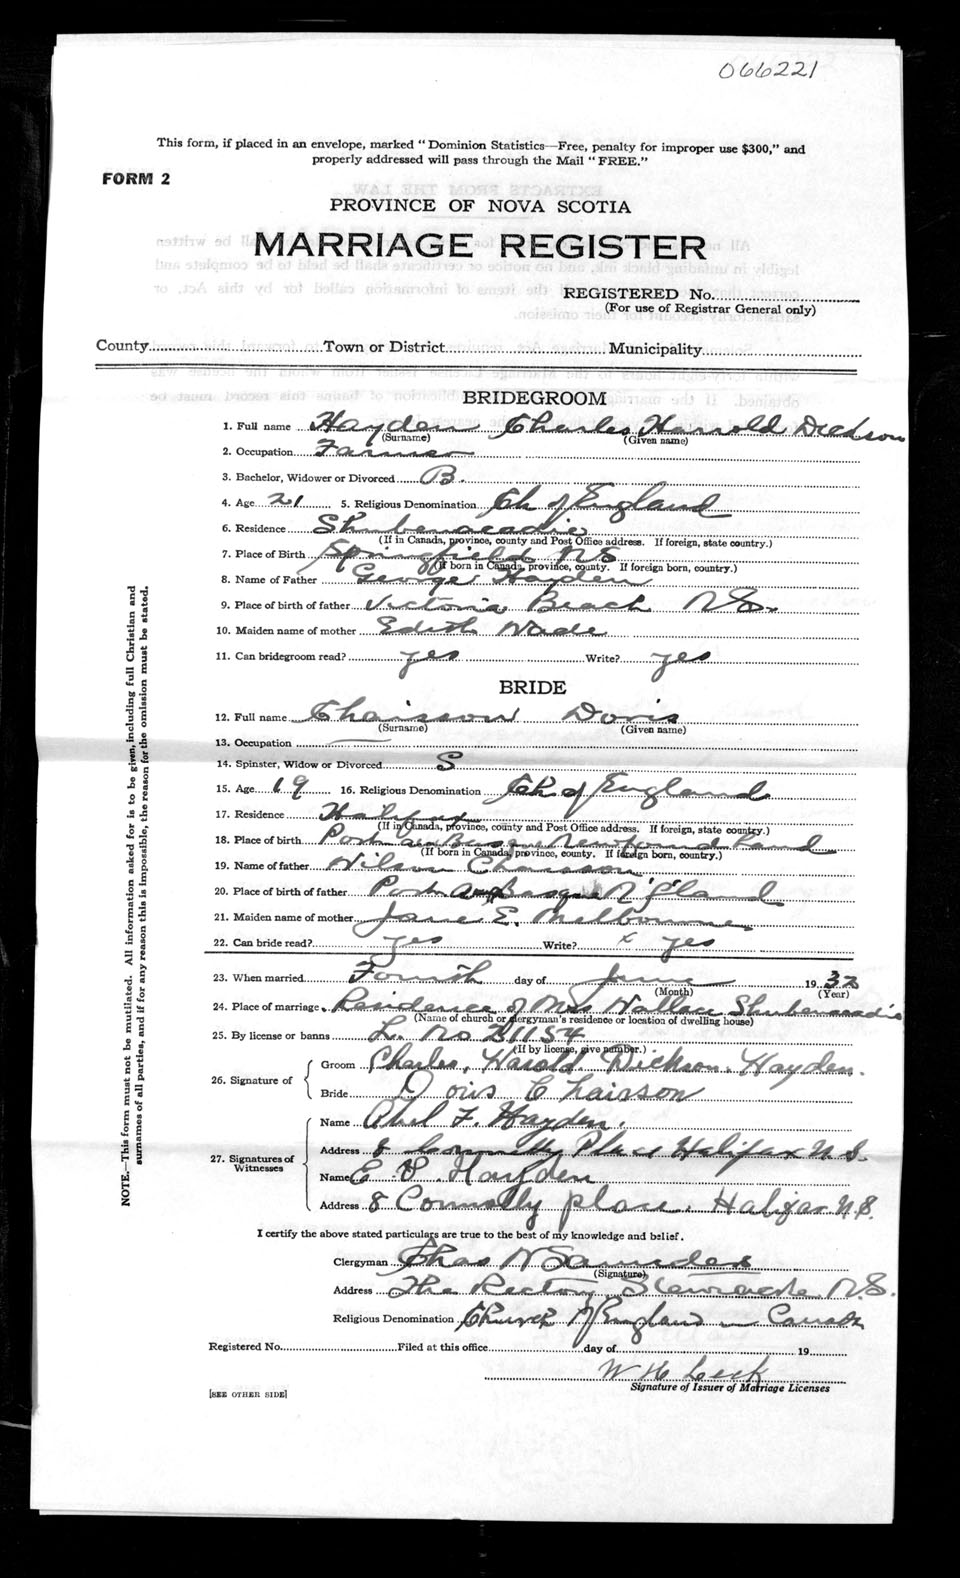 066221
This form, if placed in an envelope, marked "Dominion Statistics—Free, penalty for improper use $300," and
properly addressed will pass through the Mail "FREE."
FORM 2
PROVINCE OF NOVA SCOTIA
MARRIAGE REGISTER
REGISTERED No.
(For use of Registrar General only)
County Town or District Municipality
BRIDEGROOM
1. Full name Hayden Charles Harrold Dickson
(Surname) (Given name)
2. Occupation Farmer
3. Bachelor, Widower or Divorced B.
4. Age 21 5. Religious Denomination Ch of England
6. Residence Shubenacadie
(If in Canada, province, county and Post Office address. If foreign, state country.)
7. Place of Birth Springfield NS
(If born in Canada, province, county. If foreign born, country.)
8. Name of Father George Hayden
9. Place of birth of father Victoria Beach NS.
10. Maiden name of mother Edith Wade
11. Can bridegroom read? yes Write? yes
BRIDE
12. Full name Chaisson Doris
(Surname) (Given name)
13. Occupation
14. Spinster, Widow or Divorced S
15. Age 19 16. Religious Denomination Ch of England
17. Residence Halifax
(If in Canada, province, county and Post Office address. If foreign, state country.)
18. Place of birth Port aux Basque Newfoundland
(If born in Canada, province, county. If foreign born, country.)
19. Name of father Wilson Chaisson
20. Place of birth of father Port aux Basque N'f'land
21. Maiden name of mother Jane E. Melbourne
22. Can bride read? yes Write? x yes
23. When married Fourth day of June 19 32
(Month) (Year)
24. Place of marriage Residence of Mrs Wallace Shubenacadie
(Name of church or clergyman's residence or location of dwelling house)
25. By license or banns L. No 21154
(If by license, give number.)
26. Signature of
Groom Charles. Harold. Dickson. Hayden.
Bride Doris Chaisson
27. Signatures of
Witnesses
Name F. Hayden.
Address 8 Connolly Place Halifax N.S.
Name E Hayden
Address 8 Connolly place. Halifax N.S.
I certify the above stated particulars are true to the best of my knowledge and belief.
Clergyman Chas Saunders
(Signature)
Address The Rectory Stewiacke N.S.
Religious Denomination Church of England in Canada
Registered No. Filed at this office day of 19
W H
Signature of Issuer of Marriage Licenses
[SEE OTHER SIDE]
NOTE.—This form must not be mutilated. All information asked for is to be given, including full Christian and
surnames of all parties, and if for any reason this is impossible, the reason for the omission must be stated.